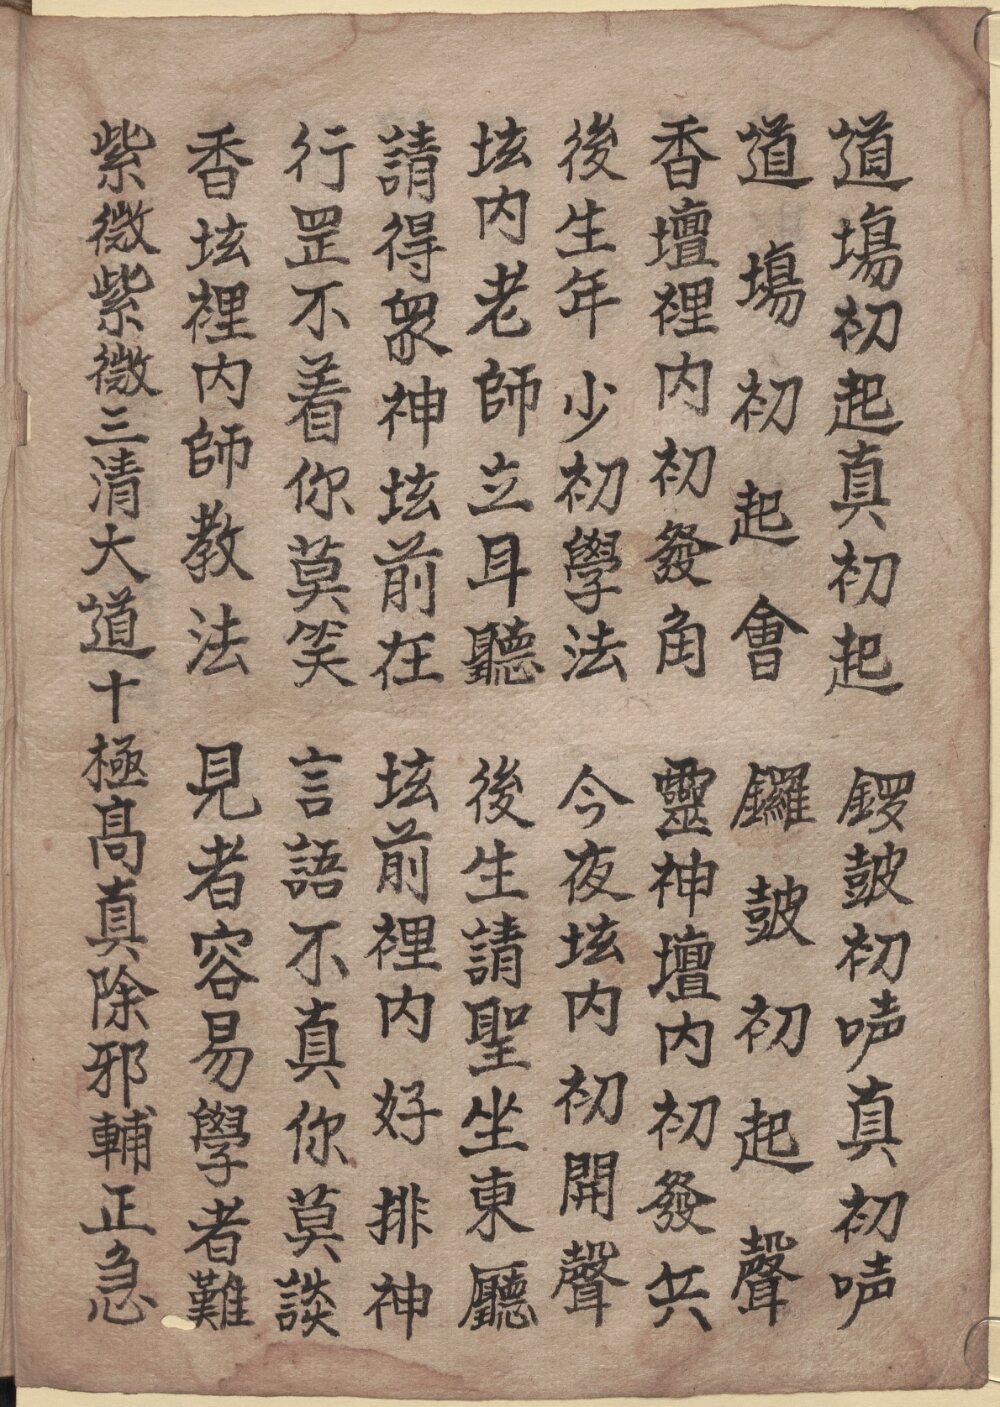 道塲初起真初起　鑼皷初咟真初咟
道塲初起會　鑼皷初起聲
香壇裡内初發角　靈神壇内初發兵
後生年少初學法　今夜坛内初開聲
坛内老師立耳聽　後生請聖坐東廳
請得衆神坛前在　坛前裡内好排神
行罡不着你莫笑　言語不真你莫談
香坛裡内師教法　見者容易學者難
紫微紫微三清大道十極高真除邪輔正急